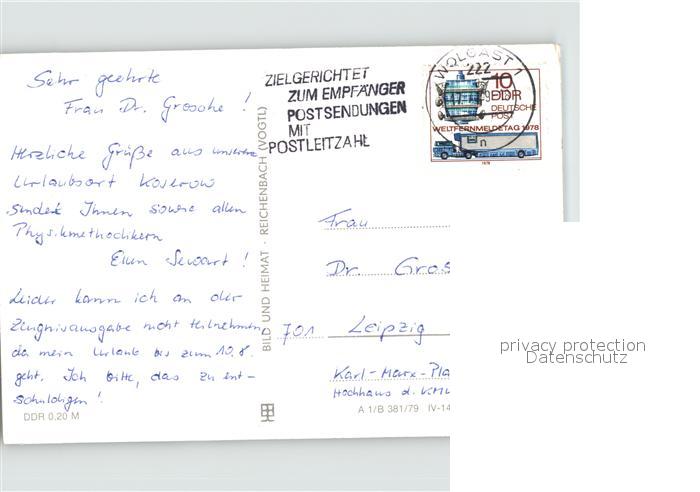 Sehr geehrte
Frau Dr. Grosche!
Herzliche Grüße aus unserem
Urlaubsort Koserow
sendet Ihnen sowie allen
Physikmethodikern
Leider kann ich an der
Zeugnisausgabe nicht teilnehmen,
da mein Urlaub bis zum 10.8.
geht. Ich bitte, das zu ent-
schuldigen!
DDR 0,20 M
BILD UND HEIMAT · REICHENBACH (VOGTL)
ZIELGERICHTET
ZUM EMPFÄNGER
POSTSENDUNGEN
MIT
POSTLEITZAHL
WOLGAST 1
222
10
DDR
DEUTSCHE
POST
WELTFERNMELDETAG 1978
1978
Frau
Dr. Gros
701 Leipzig
Karl-Marx-Pla
Hochhaus d. KMU
A 1/B 381/79 IV-14
privacy protection
Datenschutz